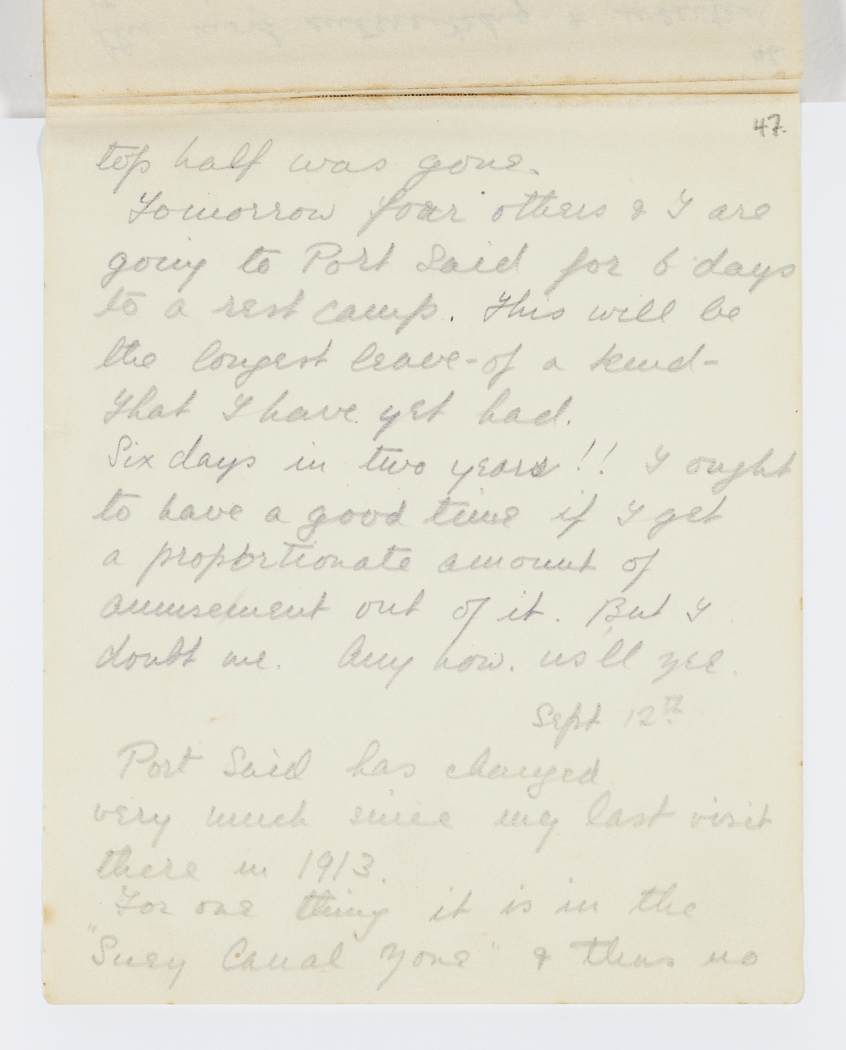 47.
top half was gone.
Tomorrow four others & I are
going to Port Said for 6 days
to a rest camp. This will be
the longest leave - of a kind -
that I have yet had.
Six days in two years!! I ought
to have a good time if I get
a proportionate amount of
amusement out of it. But I
doubt me. Any how. us'll zee.
Sept 12th
Port Said has changed
very much since my last visit
there in 1913.
For one thing it is in the
"Suez Canal Zone" & thus no